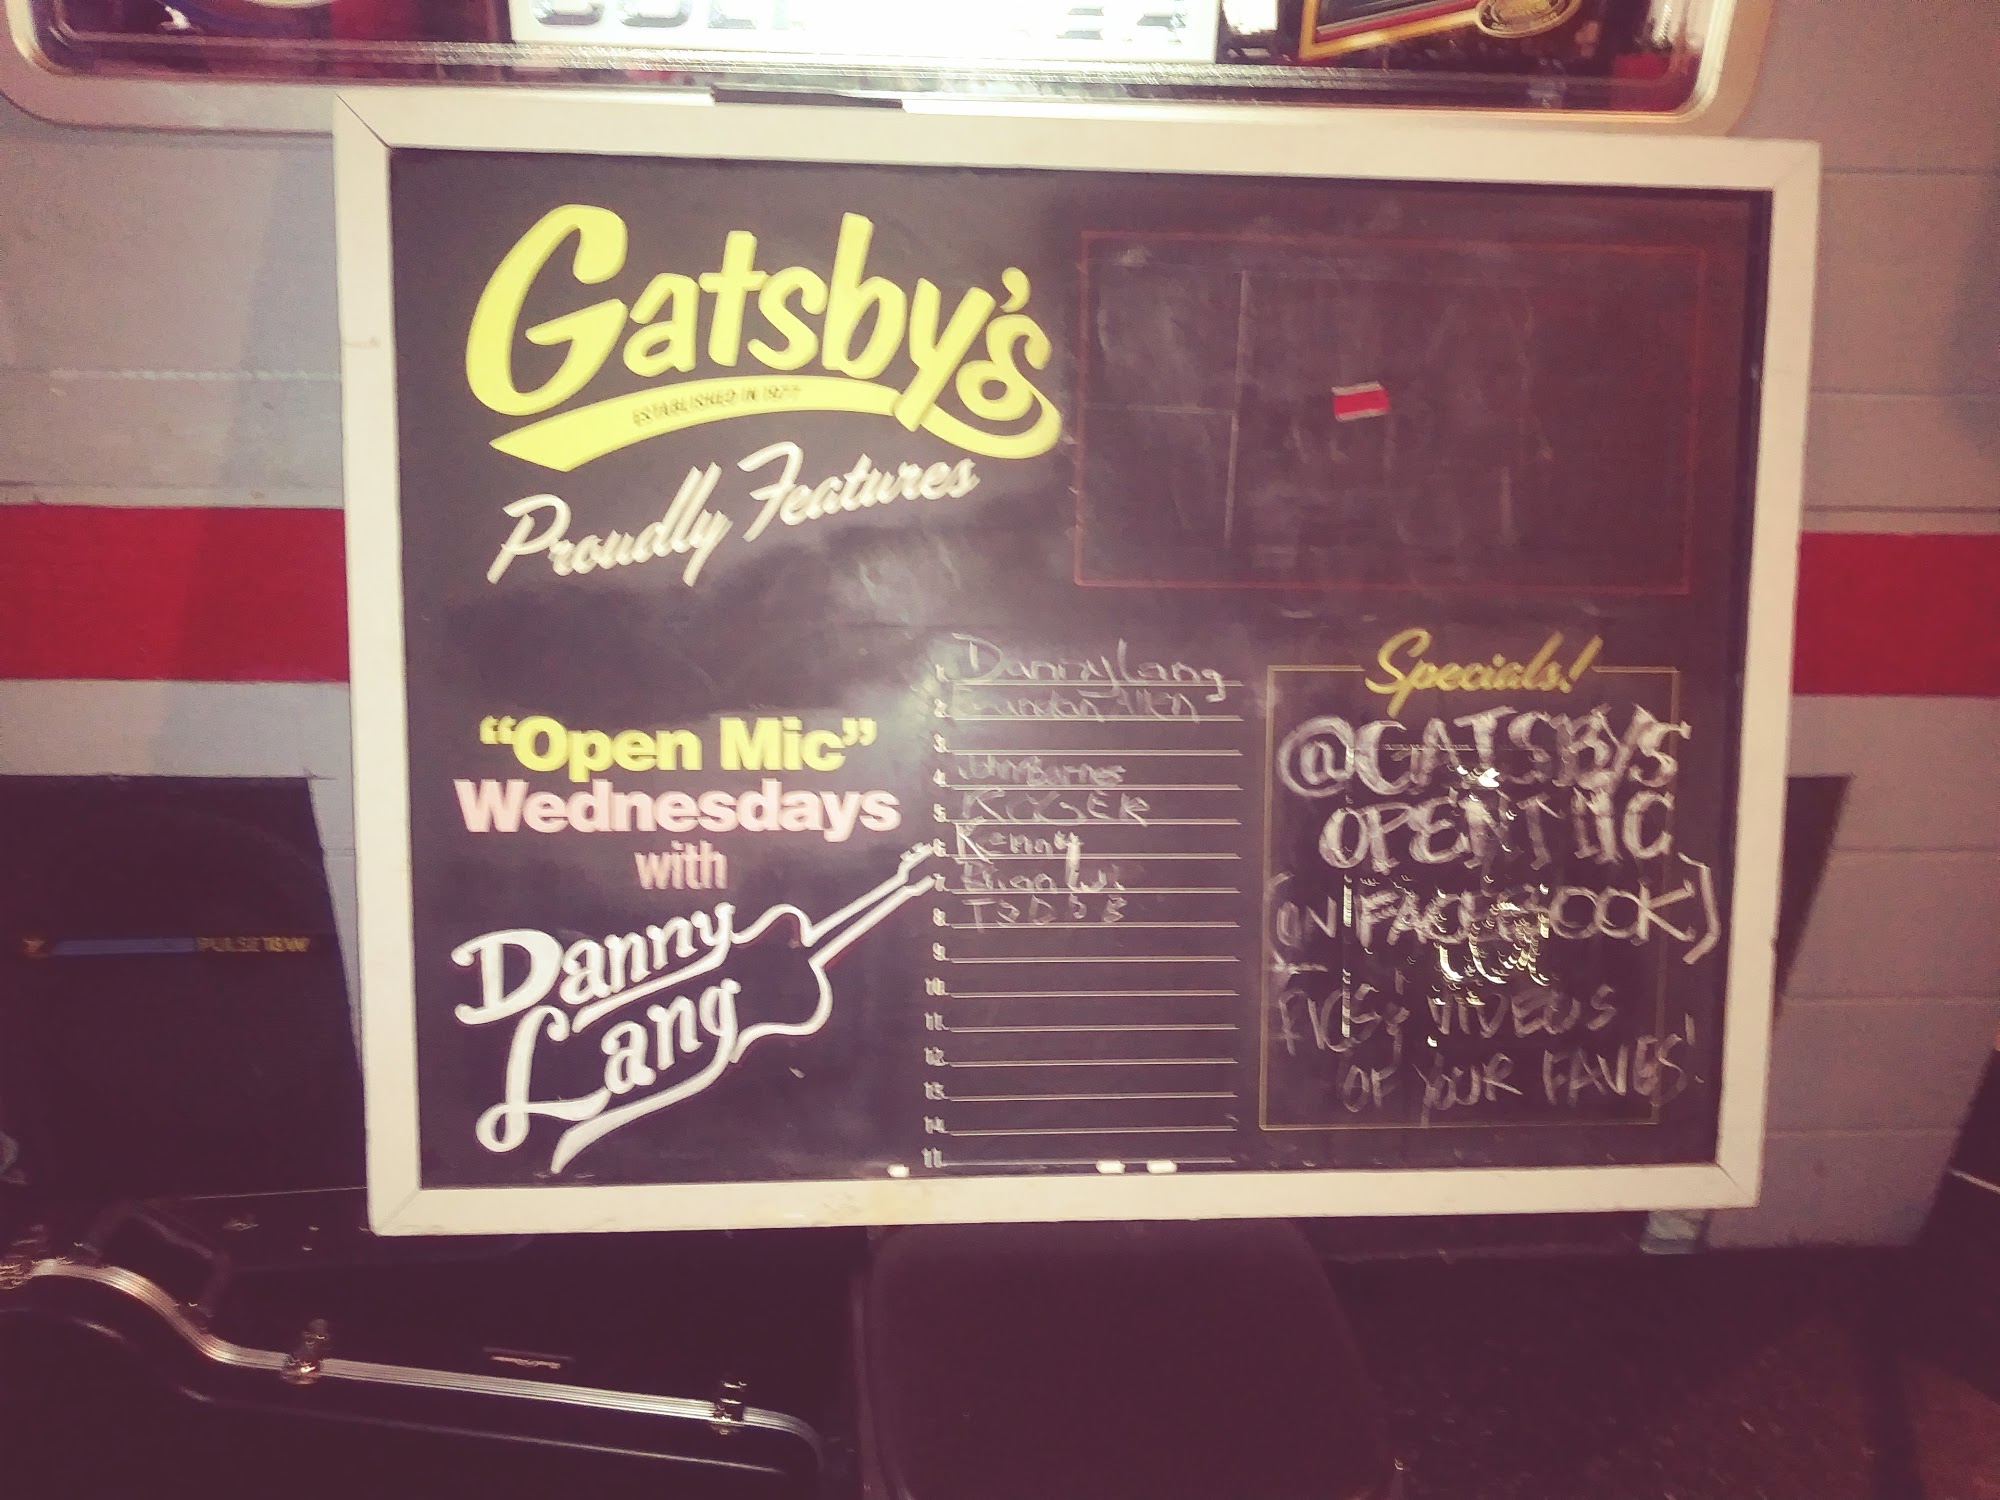 Gatsby's
ESTABLISHED IN 1977
Proudly Features
"Open Mic"
Wednesdays
with
Danny
Lang
1. Danny Lang
2. Brandon Allen
3.
4. John Barnes
5. ROGER
6. Kenny
7.
8.
9.
10.
11.
12.
13.
14.
Specials!
@GATSBYS
OPEN MIC
(ON FACEBOOK)
PICS & VIDEOS
OF YOUR FAVES!
PULSE 18W